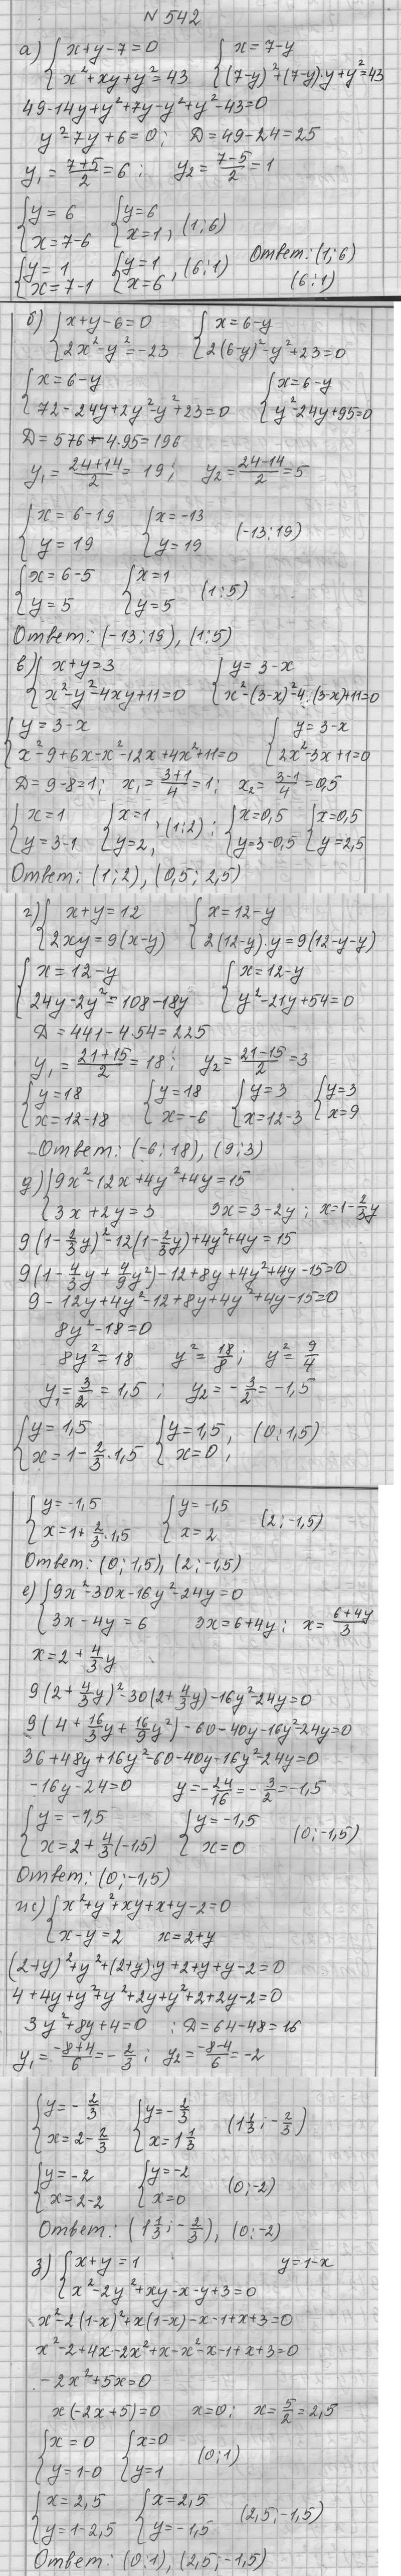 N 542
а) { x+y-7=0    { x=7-y
{ x²+xy+y²=43    { (7-y)²+(7-y)·y+y²=43
49-14y+y²+7y-y²+y²-43=0
y²-7y+6=0; D=49-24=25
y₁=(7+5)/2=6; y₂=(7-5)/2=1
{ y=6    { y=6
{ x=7-6    { x=1, (1;6)
{ y=1    { y=1    Ответ: (1;6)
{ x=7-1    { x=6, (6;1)    (6;1)
б) { x+y-6=0    { x=6-y
{ 2x²-y²=-23    { 2(6-y)²-y²+23=0
{ x=6-y    { x=6-y
{ 72-24y+2y²-y²+23=0    { y²-24y+95=0
D=576-4·95=196
y₁=(24+14)/2=19; y₂=(24-14)/2=5
{ x=6-19    { x=-13    (-13;19)
{ y=19    { y=19
{ x=6-5    { x=1    (1;5)
{ y=5    { y=5
Ответ: (-13;19), (1;5)
в) { x+y=3    { y=3-x
{ x²-y²-4xy+11=0    { x²-(3-x)²-4·(3-x)+11=0
{ y=3-x    { y=3-x
{ x²-9+6x-x²-12x+4x²+11=0    { 2x²-3x+1=0
D=9-8=1; x₁=(3+1)/4=1; x₂=(3-1)/4=0,5
{ x=1    { x=1    { x=0,5    { x=0,5
{ y=3-1    { y=2, (1;2);    { y=3-0,5    { y=2,5
Ответ: (1;2), (0,5; 2,5)
г) { x+y=12    { x=12-y
{ 2xy=9(x-y)    { 2(12-y)·y=9(12-y-y)
{ x=12-y    { x=12-y
{ 24y-2y²=108-18y    { y²-21y+54=0
D=441-4·54=225
y₁=(21+15)/2=18; y₂=(21-15)/2=3
{ y=18    { y=18    { y=3    { y=3
{ x=12-18    { x=-6    { x=12-3    { x=9
Ответ: (-6;18), (9;3)
д) { 9x²-12x+4y²+4y=15
{ 3x+2y=3    3x=3-2y; x=1-⅔y
9(1-⅔y)²-12(1-⅔y)+4y²+4y=15
9(1-4/3y+4/9y²)-12+8y+4y²+4y-15=0
9-12y+4y²-12+8y+4y²+4y-15=0
8y²-18=0
8y²=18    y²=18/8; y²=9/4
y₁=3/2=1,5; y₂=-3/2=-1,5
{ y=1,5    { y=1,5, (0;1,5)
{ x=1-⅔·1,5    { x=0;
{ y=-1,5    { y=-1,5    (2;-1,5)
{ x=1+⅔·1,5    { x=2
Ответ: (0;1,5), (2;-1,5)
е) { 9x²-30x-16y²-24y=0
{ 3x-4y=6    3x=6+4y; x=(6+4y)/3
x=2+4/3y
9(2+4/3y)²-30(2+4/3y)-16y²-24y=0
9(4+16/3y+16/9y²)-60-40y-16y²-24y=0
36+48y+16y²-60-40y-16y²-24y=0
-16y-24=0    y=-24/16=-3/2=-1,5
{ y=-1,5    { y=-1,5    (0;-1,5)
{ x=2+4/3(-1,5)    { x=0
Ответ: (0;-1,5)
ж) { x²+y²+xy+x+y-2=0
{ x-y=2    x=2+y
(2+y)²+y²+(2+y)·y+2+y+y-2=0
4+4y+y²+y²+2y+y²+2+2y-2=0
3y²+8y+4=0; D=64-48=16
y₁=(-8+4)/6=-2/3; y₂=(-8-4)/6=-2
{ y=-2/3    { y=-2/3    (1⅓;-⅔)
{ x=2-2/3    { x=1⅓
{ y=-2    { y=-2    (0;-2)
{ x=2-2    { x=0
Ответ: (1⅓;-⅔), (0;-2)
з) { x+y=1    y=1-x
{ x²-2y²+xy-x-y+3=0
x²-2(1-x)²+x(1-x)-x-1+x+3=0
x²-2+4x-2x²+x-x²-x-1+x+3=0
-2x²+5x=0
x(-2x+5)=0    x=0; x=5/2=2,5
{ x=0    { x=0    (0;1)
{ y=1-0    { y=1
{ x=2,5    { x=2,5    (2,5;-1,5)
{ y=1-2,5    { y=-1,5
Ответ: (0;1), (2,5;-1,5)